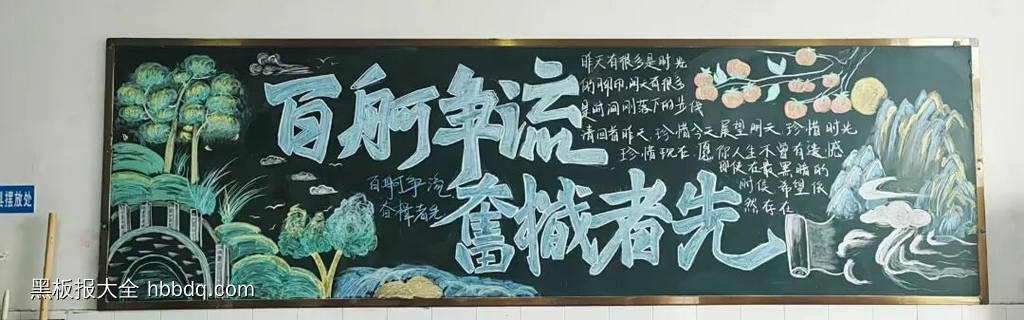 百舸争流
奮楫者先
昨天有很多是时光
的脚印,明天有很多
是时间刚落下的步
请回首昨天,珍惜今天展望明天,珍惜时光
珍惜现在 愿你人生不曾有遗憾
即使在最黑暗的
时候 希望依
然存在
百舸争流
奋楫者先
具摆放处
黑板报大全 hbbdq.com